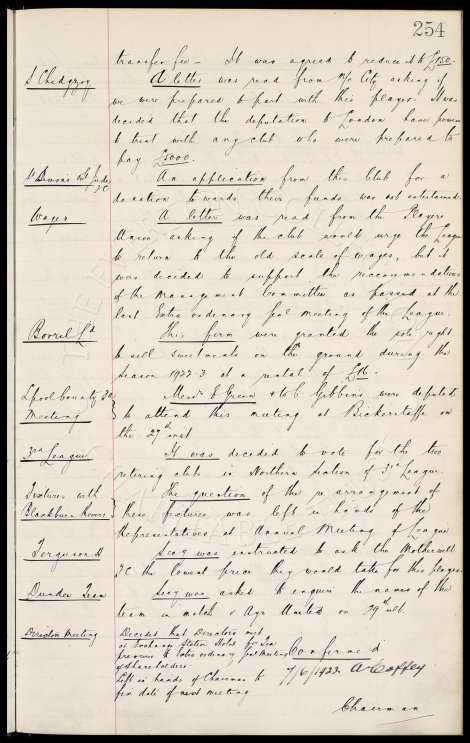 254
transfer fee - It was agreed to reduce it to £150.
S Chedgzoy
A letter was read from M/c City asking if
we were prepared to part with this player. It was
decided that the deputation to London have power
to treat with any club who were prepared to
pay £5000.
St Simons & St Judes
FC
An application from this Club for a
donation towards their funds was not entertained.
Wages
A letter was read from the Players
Union asking if the club would urge the League
to return to the old scale of wages, but it
was decided to support the recommendations
of the Management Committee as passed at the
last Extra ordinary Genl meeting of the League.
Bovril Ld
This firm were granted the sole right
to sell sweetmeats on the ground during the
season 1922-3 at a rental of
Lpool County Fa
Meeting
Messrs E Green & W C Gibbins were deputed
to attend this meeting at Bickerstaffe on
the 27th inst
3rd League
It was decided to vote for the two
retiring clubs in Northern section of 3rd League.
Fixtures with
Blackburn Rovers
The question of the re arrangement of
these fixtures was left in hands of the
Representatives at Annual Meeting of League
Ferguson H
Secy was instructed to ask the Motherwell
FC the lowest price they would take for this player.
Dundee Team
Secy was asked to enquire the names of the
team in match v Ayr United on 29th ult
Directors Meeting
Decided that Directors meet
at Exchange Station Hotel for Tea
previous to Extra ordinary Genl Meeting
of Shareholders
Left in hands of Chairman to
fix date of next meeting
Confirmed
7/6/1922 A Coffey
Chairman